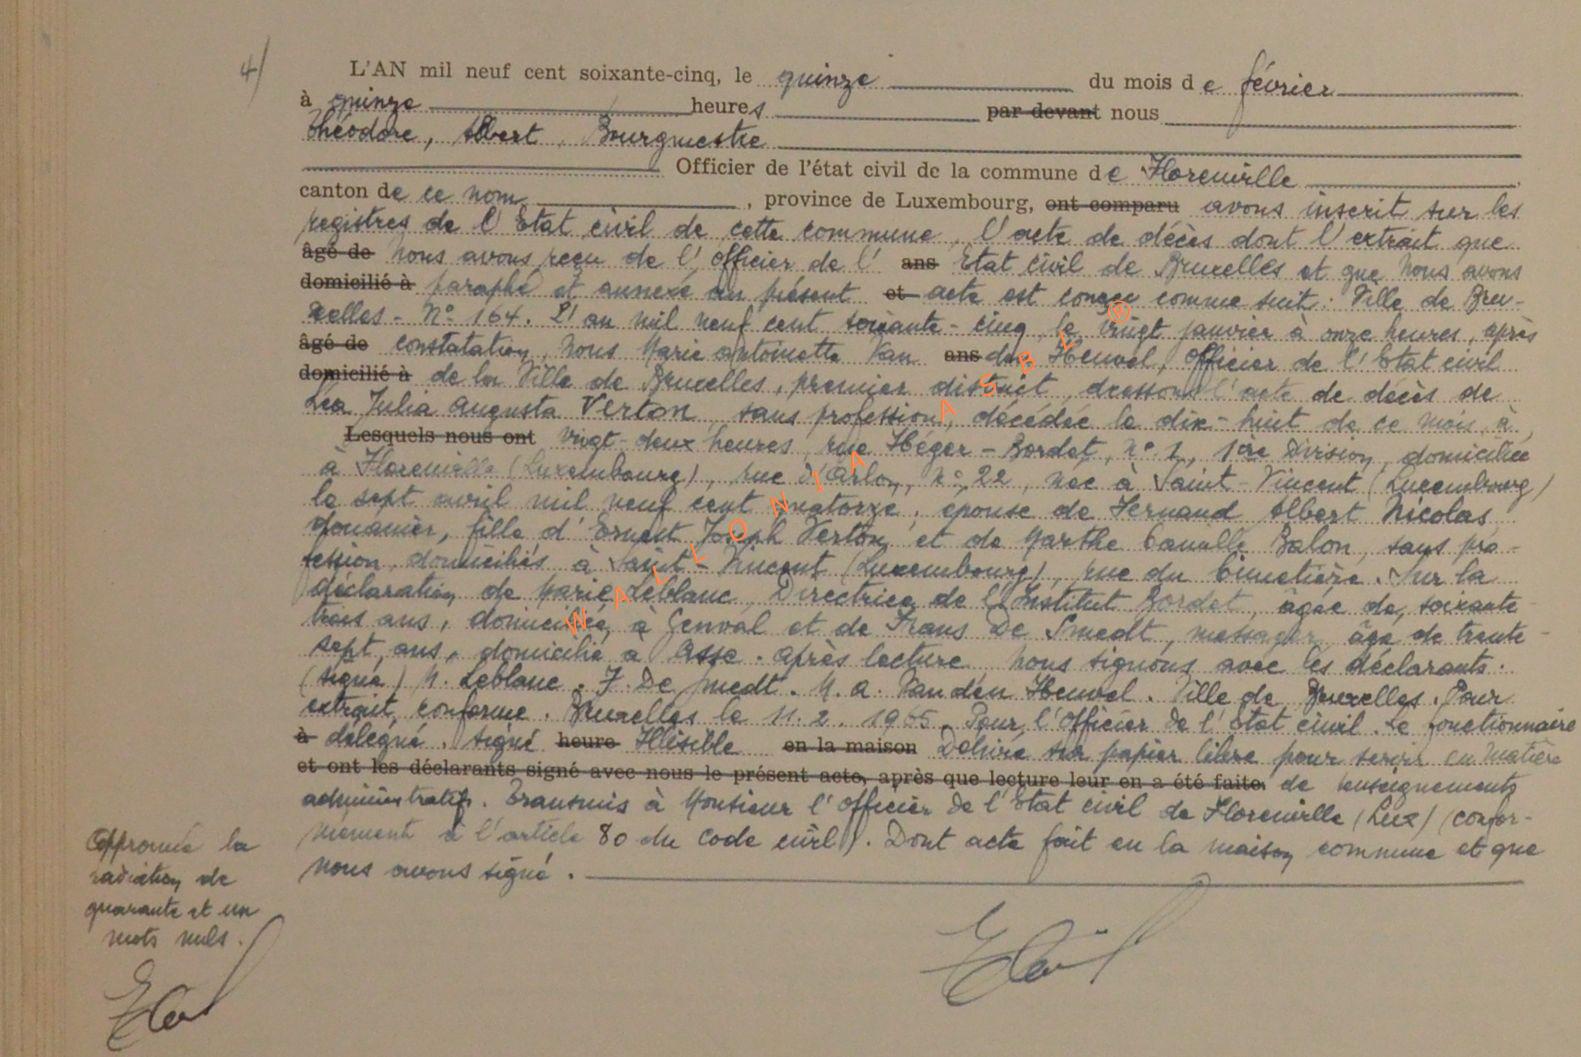 4/
L'AN mil neuf cent soixante-cinq, le quinze du mois de février
à quinze heures par devant nous
Théodore, Albert, Bourgmestre
Officier de l'état civil de la commune de Florenville
canton de ce nom, province de Luxembourg, ont comparu avons inscrit sur les
registres de l'Etat civil de cette commune, l'acte de décès dont l'extrait que
âgé de Nous avons reçu de l'officier de l' ans Etat civil de Bruxelles et que Nous avons
domicilié à paraphé et annexé au présent et acte est conçu comme suit : Ville de Bru-
xelles - N° 164. L'an mil neuf cent soixante-cinq, le vingt janvier à onze heures, après
âgé de constatation, Nous Marie Antoinette Van ans den Heuvel, Officier de l'Etat civil
domicilié à de la Ville de Bruxelles, premier district, dressons l'acte de décès de
Léa Julia Augusta Verton, sans profession, décédée le dix-huit de ce mois à
Lesquels nous ont vingt-deux heures, rue Héger-Bordet, N° 1, 1ère Division, domiciliée
à Florenville (Luxembourg), rue d'Arlon, N° 22, née à Saint-Vincent (Luxembourg)
le sept avril mil neuf cent quatorze, épouse de Fernand Albert Nicolas
douanier, fille d'Ernest Joseph Verton et de Marthe Camille Balon, sans pro-
fession, domiciliés à Saint-Vincent (Luxembourg), rue du Cimetière. Sur la
déclaration de Marie Leblanc, Directrice de l'Institut Bordet, âgée de soixante-
trois ans, domiciliée à Genval et de Frans De Smedt, messager, âgé de trente-
sept ans, domicilié à Asse. Après lecture Nous signons avec les déclarants.
(signé) M. Leblanc. F. De Smedt. M. A. Van den Heuvel. Ville de Bruxelles. Pour
extrait conforme. Bruxelles le 11. 2. 1965. Pour l'Officier de l'Etat civil. Le fonctionnaire
à délégué. Signé heure Illisible en la maison Délivré sur papier libre pour servir en matière
et ont les déclarants signé avec nous le présent acte, après que lecture leur en a été faite. de renseignements
administratifs. Transmis à Monsieur l'Officier de l'Etat civil de Florenville (Lux) (confor-
mément à l'article 80 du Code civil). Dont acte fait en la maison commune et que
nous avons signé.
Approuvé la
radiation de
quarante et un
mots nuls.
WALLONIA ASBL ®